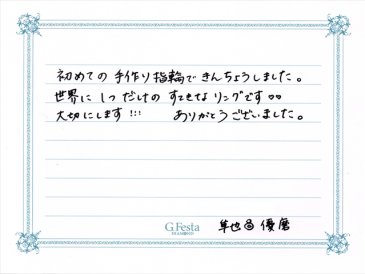 初めての手作り指輪できんちょうしました。
世界に1つだけのすてきなリングです♡♡
大切にします!!! ありがとうございました。
G.Festa
DIAMOND
隼也 優磨